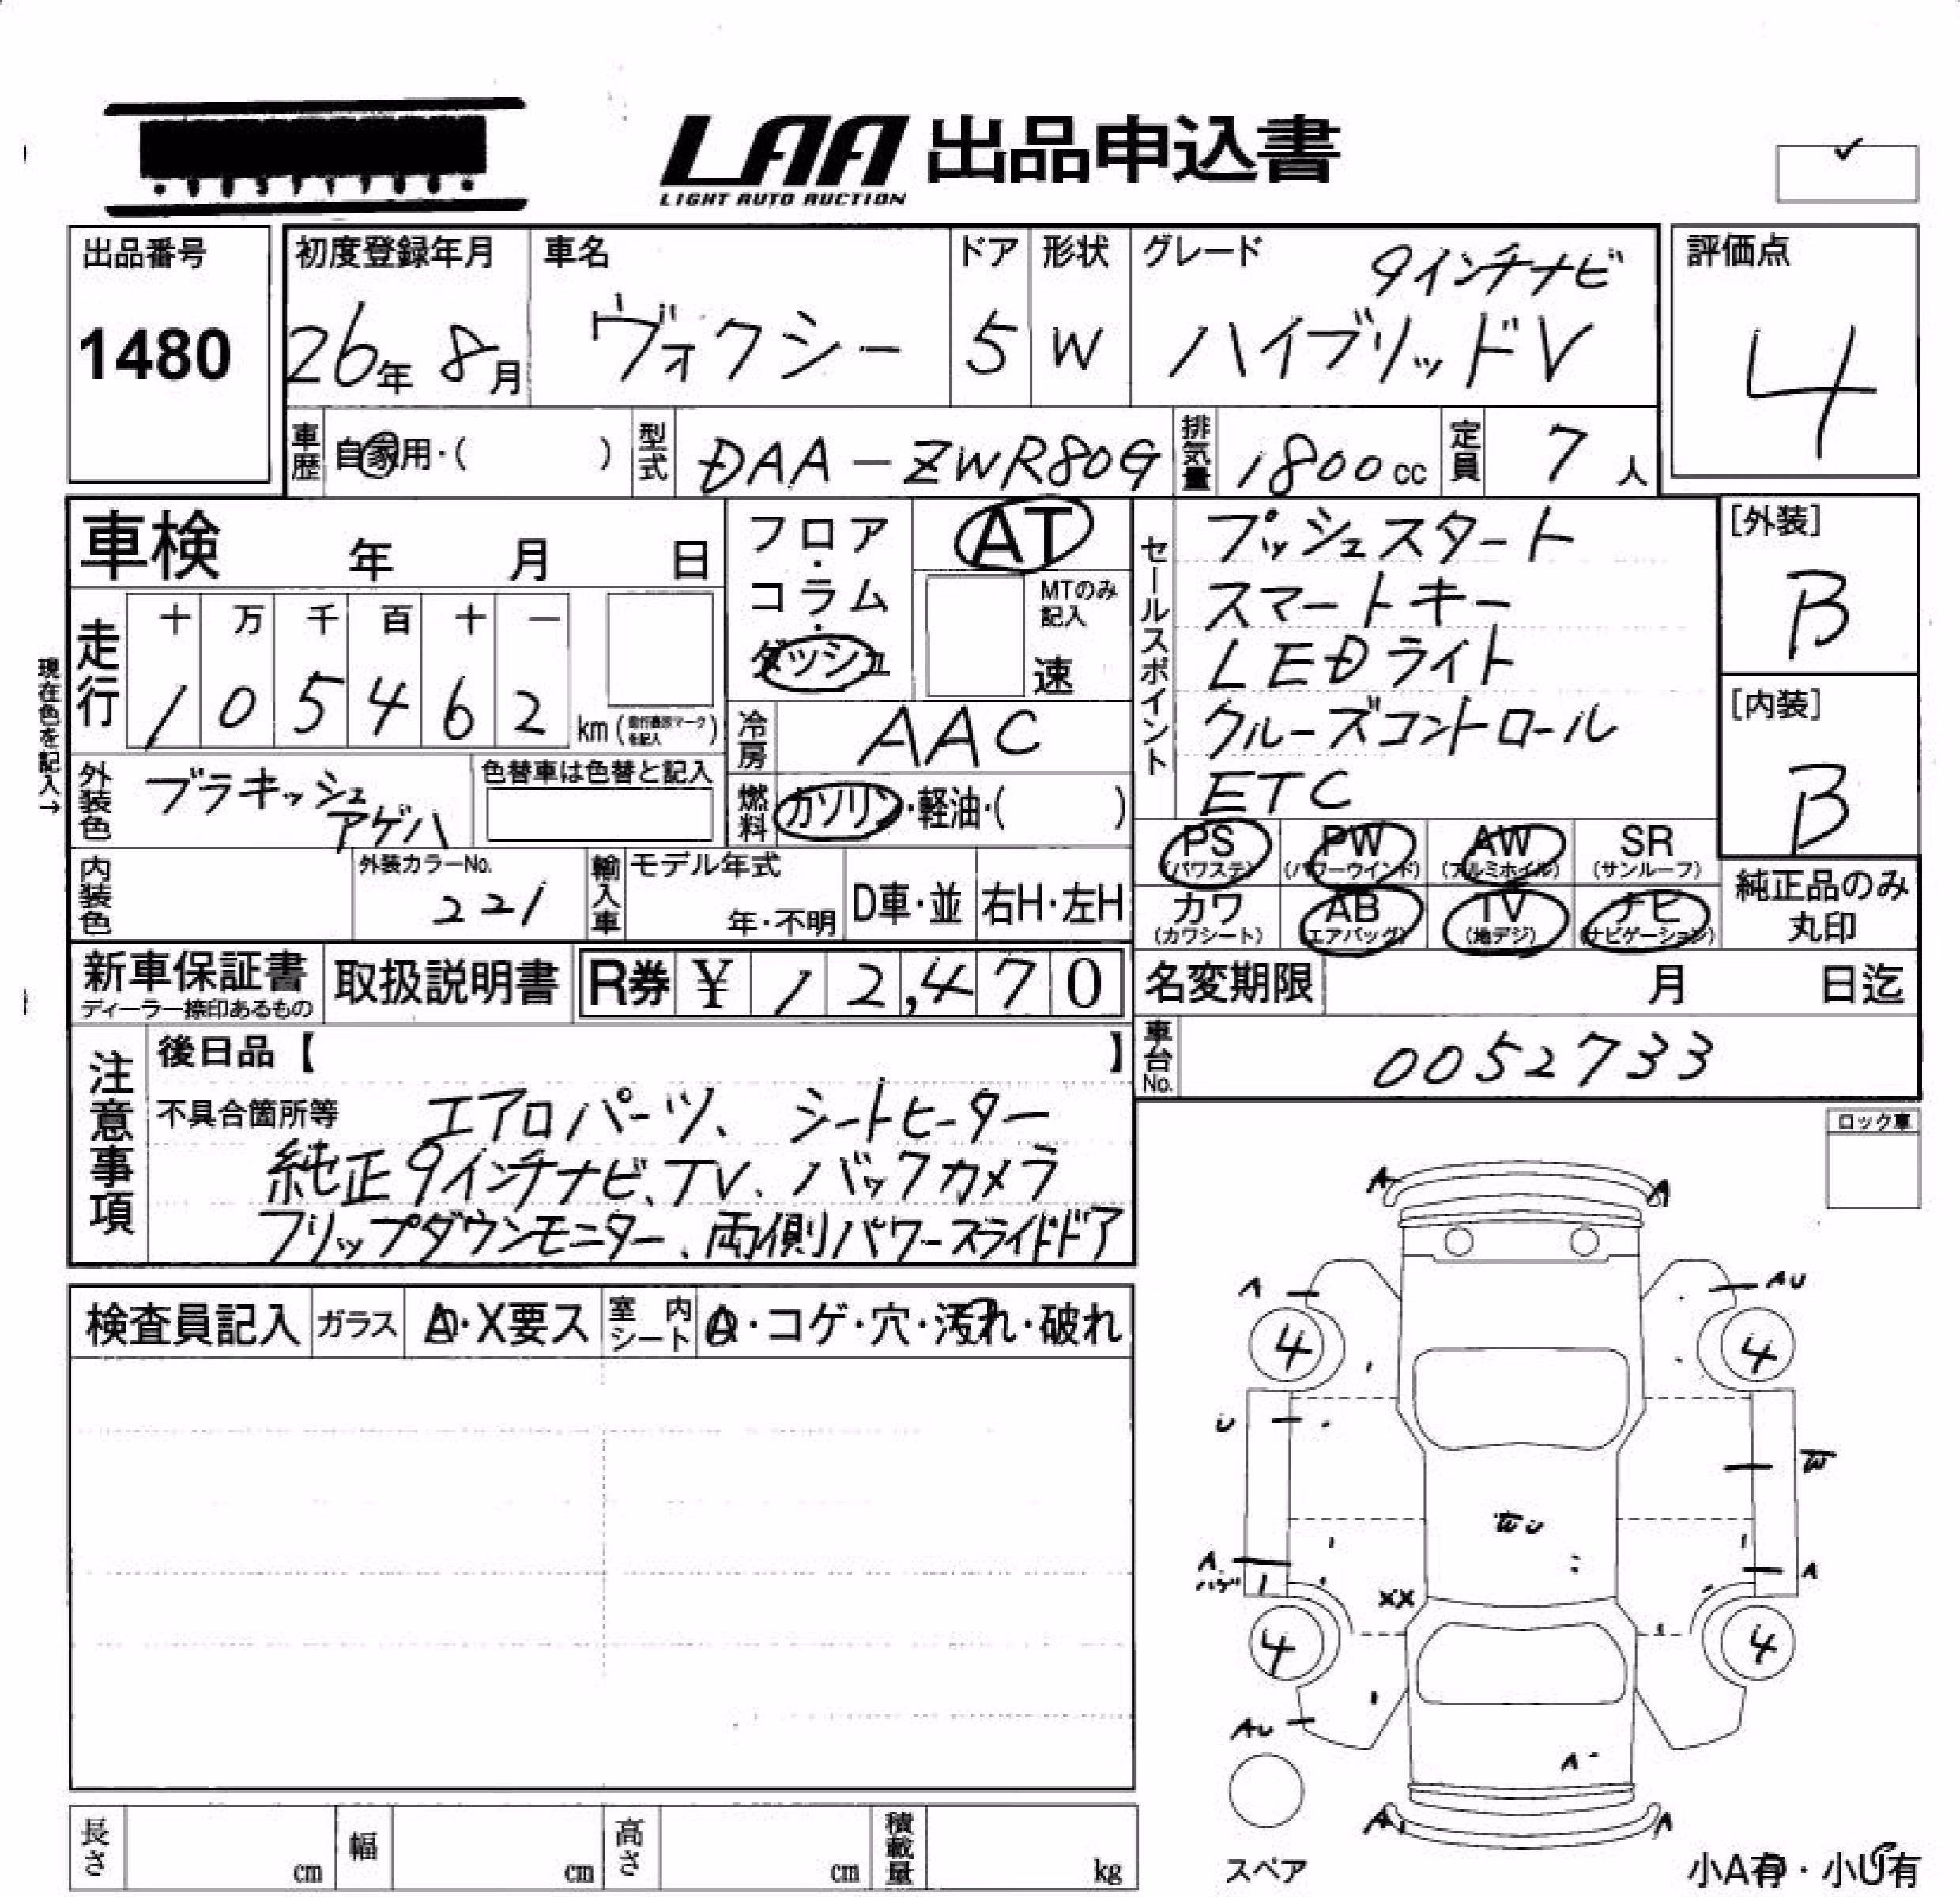 LAA 出品申込書
LIGHT AUTO AUCTION
出品番号
1480
初度登録年月
26年 8月
車名
ヴォクシー
ドア
5
形状
W
グレード
9インチナビ
ハイブリッドV
評価点
4
車歴 自家用・( )
型式 DAA-ZWR80G
排気量 1800cc
定員 7人
車検 年 月 日
フロア・コラム・ダッシュ
AT
MTのみ記入
速
セールスポイント
プッシュスタート
スマートキー
LEDライト
クルーズコントロール
ETC
[外装]
B
[内装]
B
現在色を記入→
走行
十 万 千 百 十 一
1 0 5 4 6 2 km (走行表示マークを記入)
冷房 AAC
外装色 ブラキッシュアゲハ
色替車は色替と記入
燃料 ガソリン・軽油・( )
内装色
外装カラーNo.
221
輸入車
モデル年式
年・不明
D車・並
右H・左H
PS (パワステ)
PW (パワーウインド)
AW (アルミホイル)
SR (サンルーフ)
カワ (カワシート)
AB (エアバッグ)
TV (地デジ)
ナビ (ナビゲーション)
純正品のみ丸印
新車保証書
ディーラー捺印あるもの
取扱説明書
R券 ¥ 12,470
名変期限 月 日迄
車台No. 0052733
注意事項
後日品【 】
不具合箇所等 エアロパーツ、シートヒーター
純正9インチナビ、TV、バックカメラ
フリップダウンモニター、両側パワースライドドア
ロック車
検査員記入
ガラス A・X要ス
室内シート A・コゲ・穴・汚れ・破れ
A A
A AU
4 4
U W
A A
ハゲ
XX
4 4
AU
A
A A
スペア
小A有・小U有
長さ cm
幅 cm
高さ cm
積載量 kg